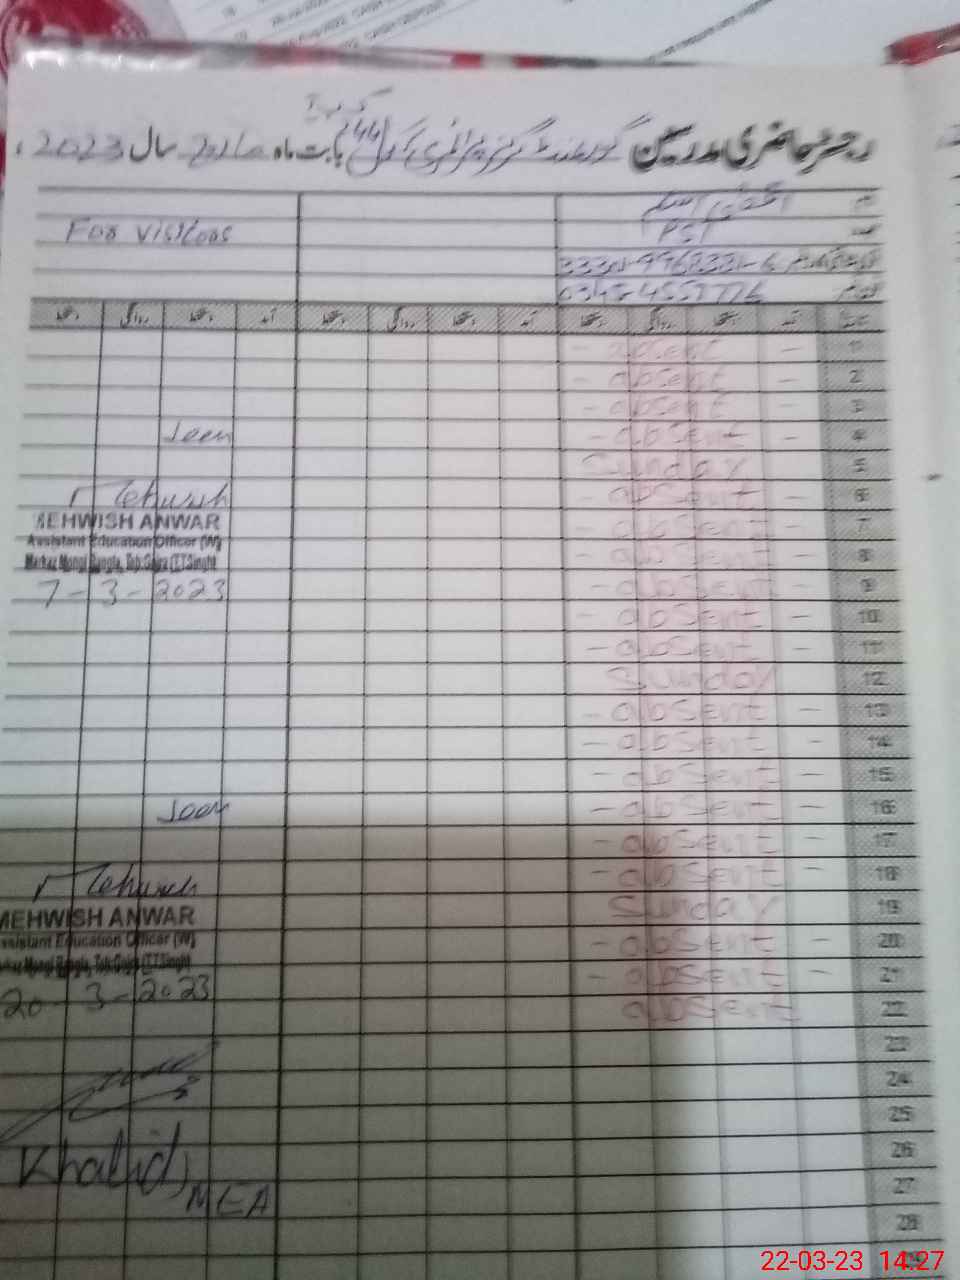 رجسٹر حاضری مدرسین گورنمنٹ گرلز پرائمری سکول 244 بابت ماہ مارچ سال 2023ء
نام
PST
For Visitors
0345-4557776
آمد دستخط روانگی دستخط آمد دستخط روانگی دستخط آمد دستخط روانگی دستخط
1 - absent -
2 - absent -
3 - absent -
4 - absent - Seen
5 Sunday
6 - absent - Mehwish
7 - absent - MEHWISH ANWAR
Assistant Education Officer (W)
8 - absent - Markaz Mongi Bangla, Teh:Gojra (T.T.Singh)
9 - absent - 7-3-2023
10 - absent -
11 - absent -
12 Sunday
13 - absent -
14 - absent -
15 - absent -
16 - absent - Seen
17 - absent -
18 - absent - Mehwish
19 Sunday MEHWISH ANWAR
20 - absent - Assistant Education Officer (W)
Markaz Mongi Bangla, Teh:Gojra (T.T.Singh)
21 - absent - 20-3-2023
22 absent
23
24
25
26 Khalid,
27 MEA
28
29
22-03-23 14:27